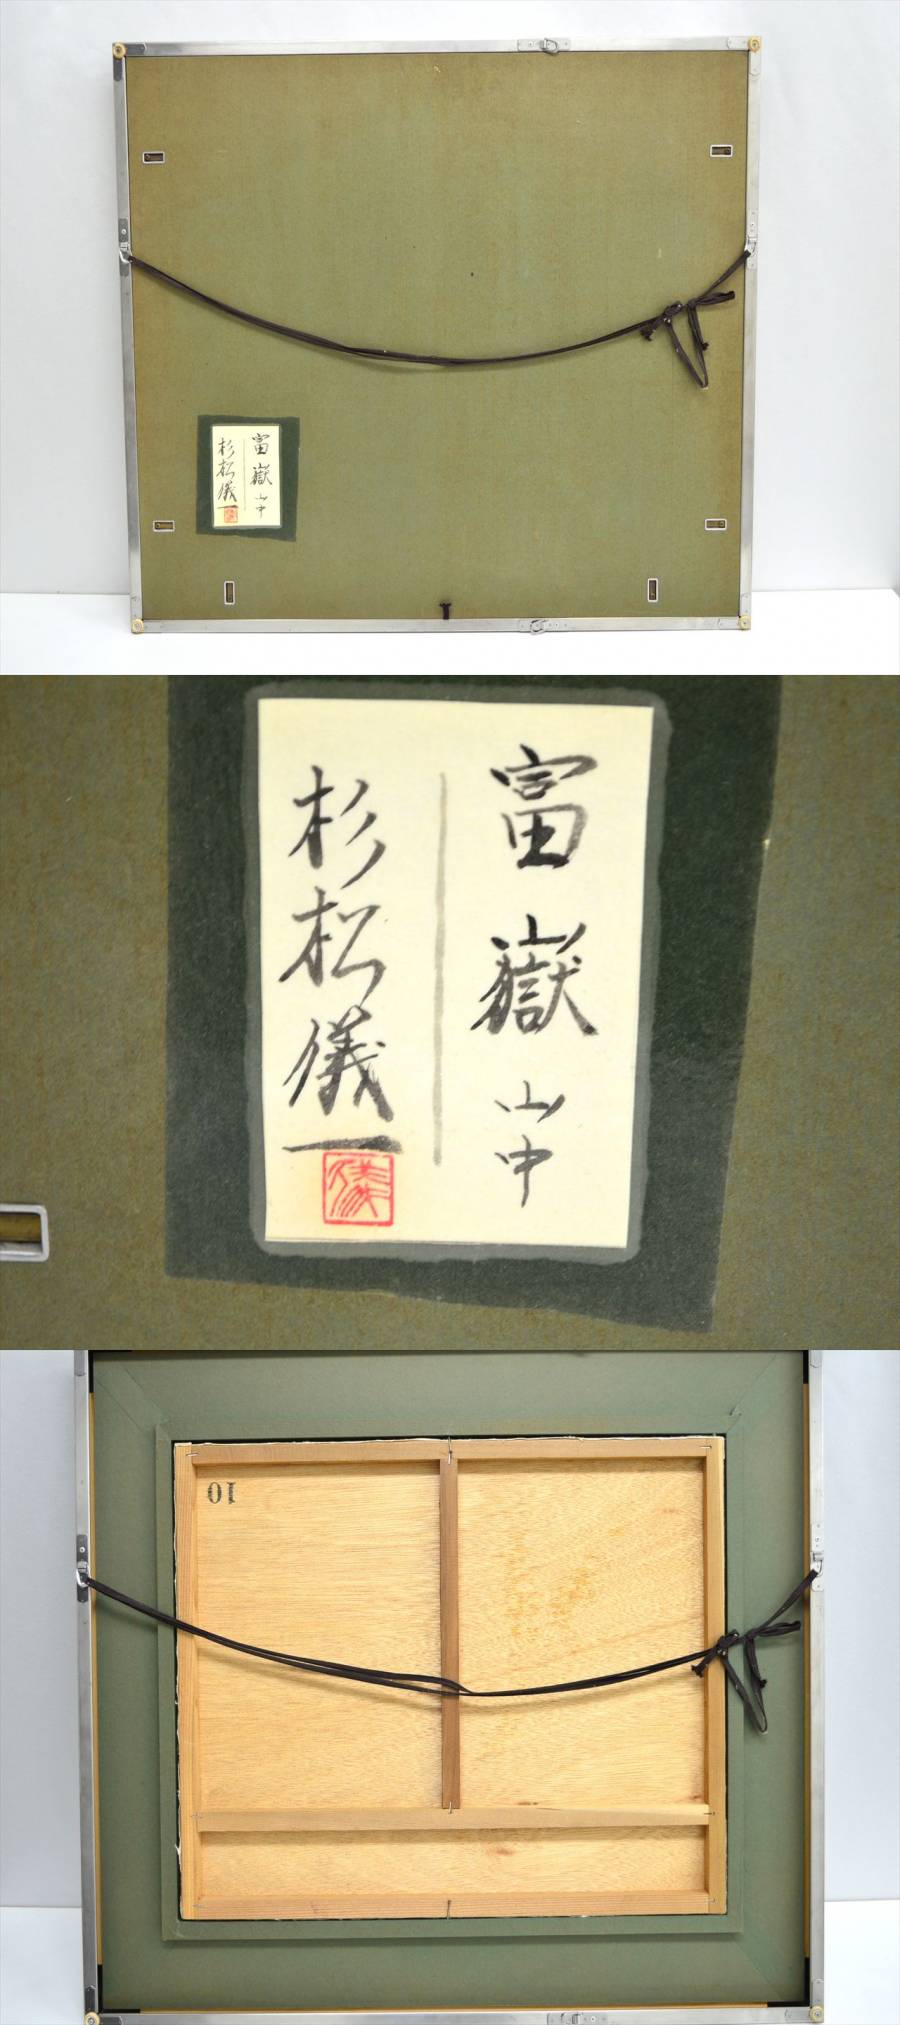 富嶽山中
杉松儀一
富嶽山中
杉松儀一
儀
10